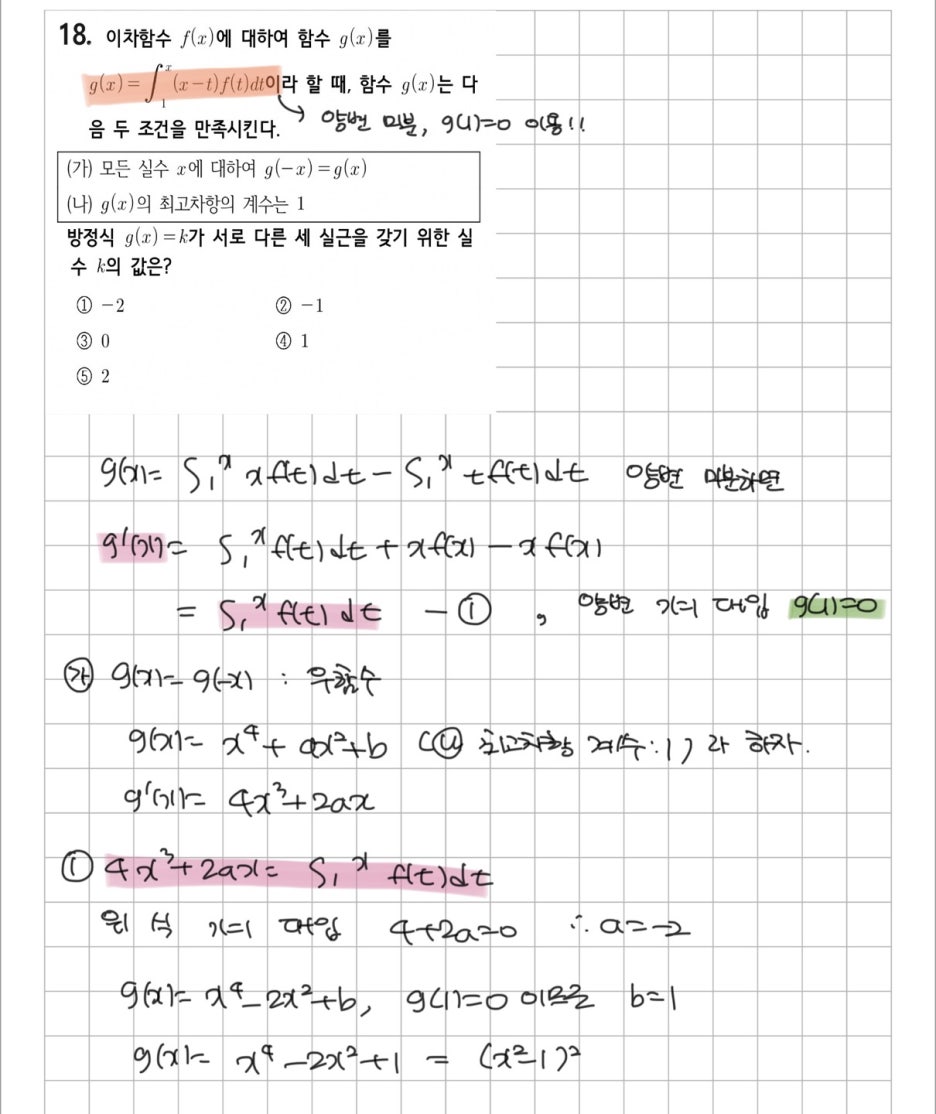 18. 이차함수 f(x)에 대하여 함수 g(x)를
g(x)=∫₁ˣ(x-t)f(t)dt이라 할 때, 함수 g(x)는 다
음 두 조건을 만족시킨다.
→ 양변 미분, g(1)=0 이용!!
(가) 모든 실수 x에 대하여 g(-x)=g(x)
(나) g(x)의 최고차항의 계수는 1
방정식 g(x)=k가 서로 다른 세 실근을 갖기 위한 실
수 k의 값은?
① -2 ② -1
③ 0 ④ 1
⑤ 2
g(x)= ∫₁ˣ xf(t)dt - ∫₁ˣ tf(t)dt 양변 미분하면
g'(x)= ∫₁ˣ f(t)dt + xf(x) - xf(x)
= ∫₁ˣ f(t)dt -① , 양변 x=1 대입 g(1)=0
㉮ g(x)=g(-x) : 우함수
g(x)= x⁴+ax²+b (㉯ 최고차항 계수:1) 라 하자.
g'(x)= 4x³+2ax
① 4x³+2ax= ∫₁ˣ f(t)dt
위 식 x=1 대입 4+2a=0 ∴a=-2
g(x)= x⁴-2x²+b, g(1)=0 이므로 b=1
g(x)= x⁴-2x²+1 = (x²-1)²